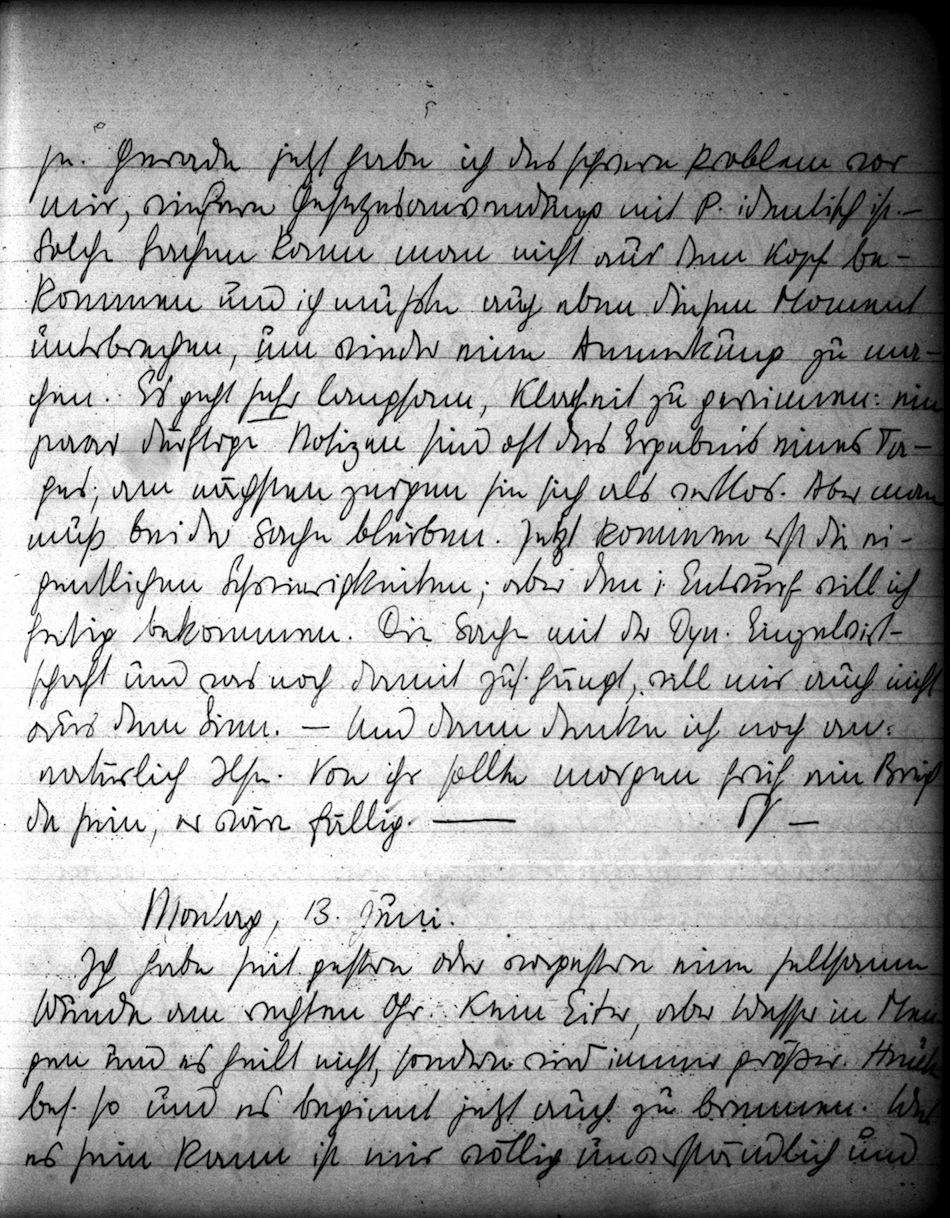 je. Gerade jetzt habe ich das schwere Problem vor
mir, wiefern Gesetzesanwendung mit P. identisch ist. –
Solche Sachen kann man nicht aus dem Kopf be-
kommen und ich mußte auch eben diesen Moment
unterbrechen, um wieder eine Anmerkung zu ma-
chen. Es geht sehr langsam, Klarheit zu gewinnen: ein
paar dürftige Notizen sind oft das Ergebnis eines Ta-
ges; am nächsten zeigen sie sich als wertlos. Aber man
muß bei der Sache bleiben. Jetzt kommen erst die ei-
gentlichen Schwierigkeiten; aber den 1. Entwurf will ich
fertig bekommen. Die Sache mit der Dyn. Einzelwirt-
schaft und was noch damit zus. hängt, will mir auch nicht
aus dem Sinn. — Und dann denke ich noch an:
natürlich Ilse. Von ihr sollte morgen früh ein Brief
da sein, er wäre fällig. ——
Montag, 13. Juni.
Ich habe seit gestern oder vorgestern eine seltsame
Wunde am rechten Ohr. Kein Eiter, aber Wasser in Men-
gen und es heilt nicht, sondern wird immer größer. Heute
bes. so und es beginnt jetzt auch zu brennen. Was
es sein kann ist mir völlig unverständlich und